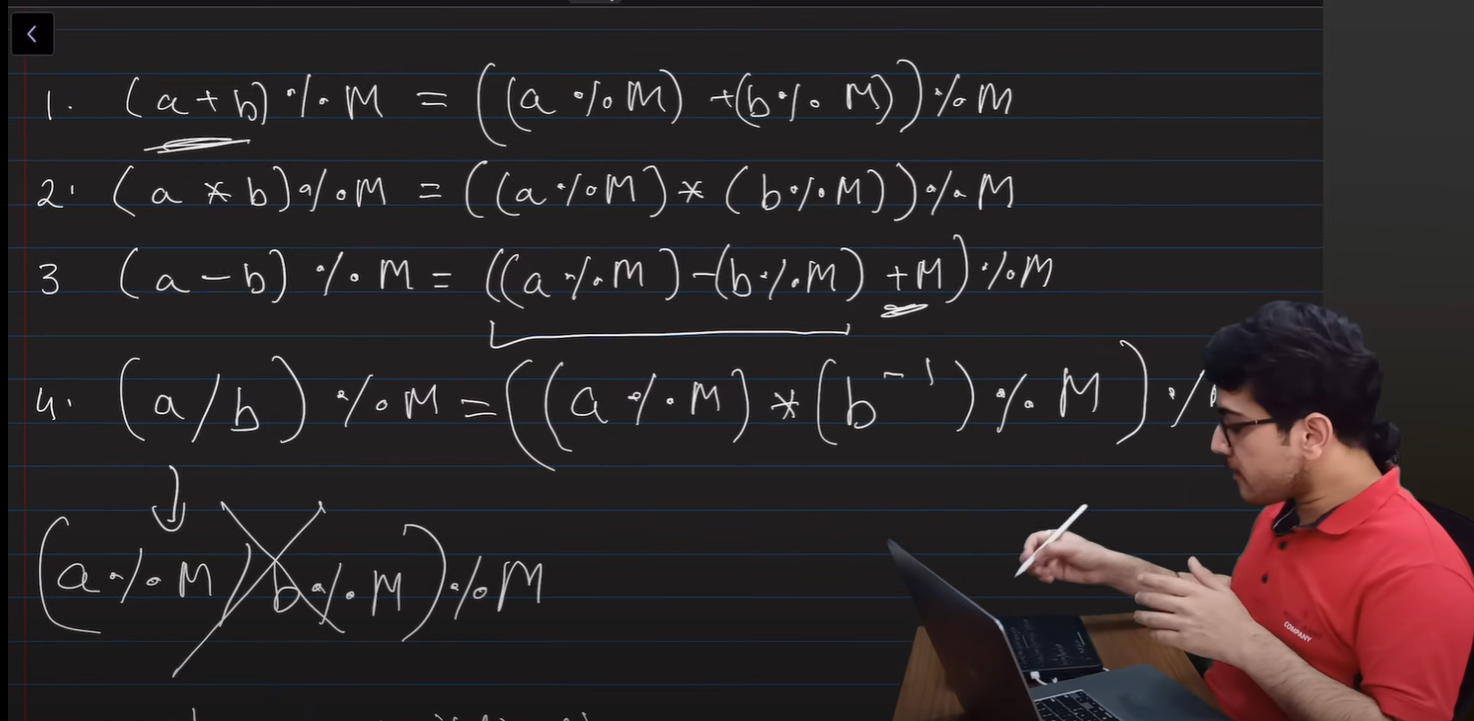 1. (a+b) % M = ((a % M) +(b % M)) % M
2. (a * b) % M = ((a % M) * (b % M)) % M
3 (a - b) % M = ((a % M) -(b % M) +M) % M
4. (a/b) % M = ((a % M) * (b⁻¹) % M) %
(a % M / b % M) % M
COMPANY